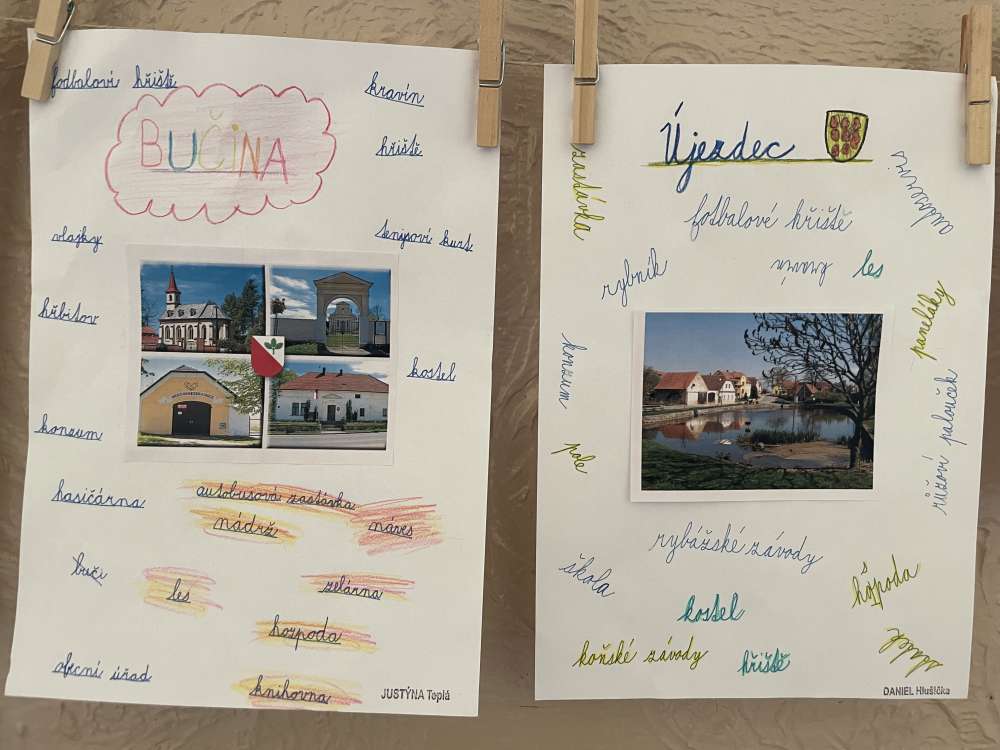 fotbaloví hřiště
BUČINA
kravín
hřiště
vlajky
tenisoví kurt
hřbitov
kostel
konzum
hasičárna
autobusová zastávka
nádrž
náves
buči
les
zelárna
hozpoda
obecní úřad
knihovna
JUSTÝNA Teplá
Újezdec
zastávka
autoservis
fotbalové hřiště
rybník
kravín
les
paneláky
konzum
růžoví palouček
pole
rybářské závody
škola
hospoda
kostel
koňské závody
hřiště
statek
DANIEL Hlušička